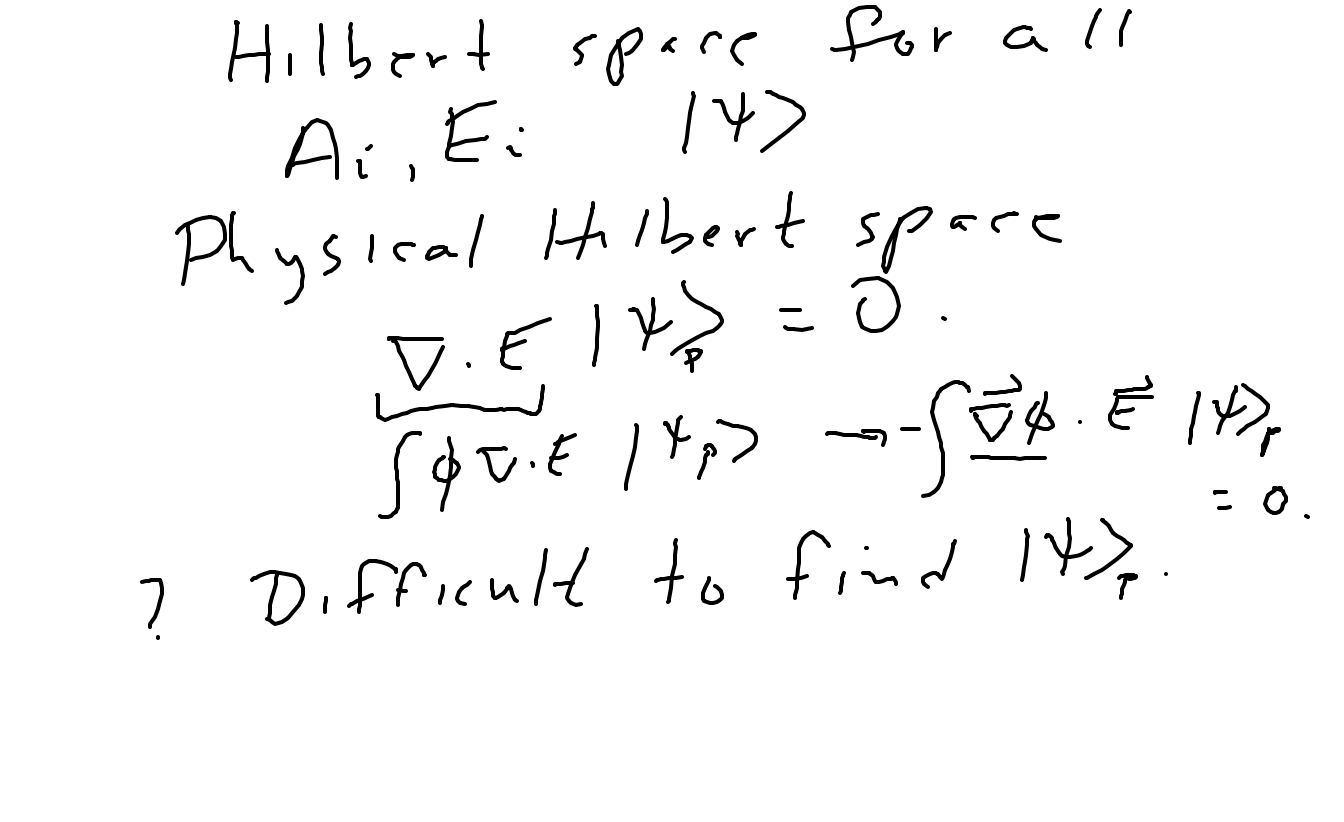 Hilbert space for all
Ai, Ei |ψ>
Physical Hilbert space
∇·E |ψ>ₚ = 0.
∫ϕ∇·E |ψₚ> → -∫∇⃗ϕ·E⃗ |ψ>ₚ
= 0.
? Difficult to find |ψ>ₚ.